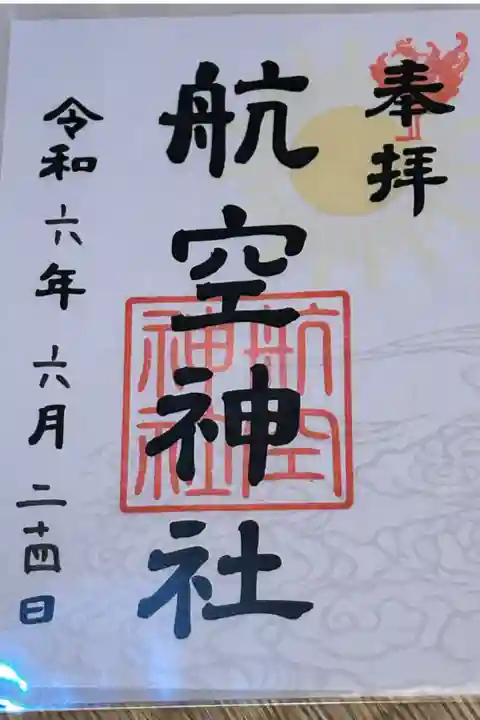 奉拝
航空神社
航空
神社
令和六年六月二十四日